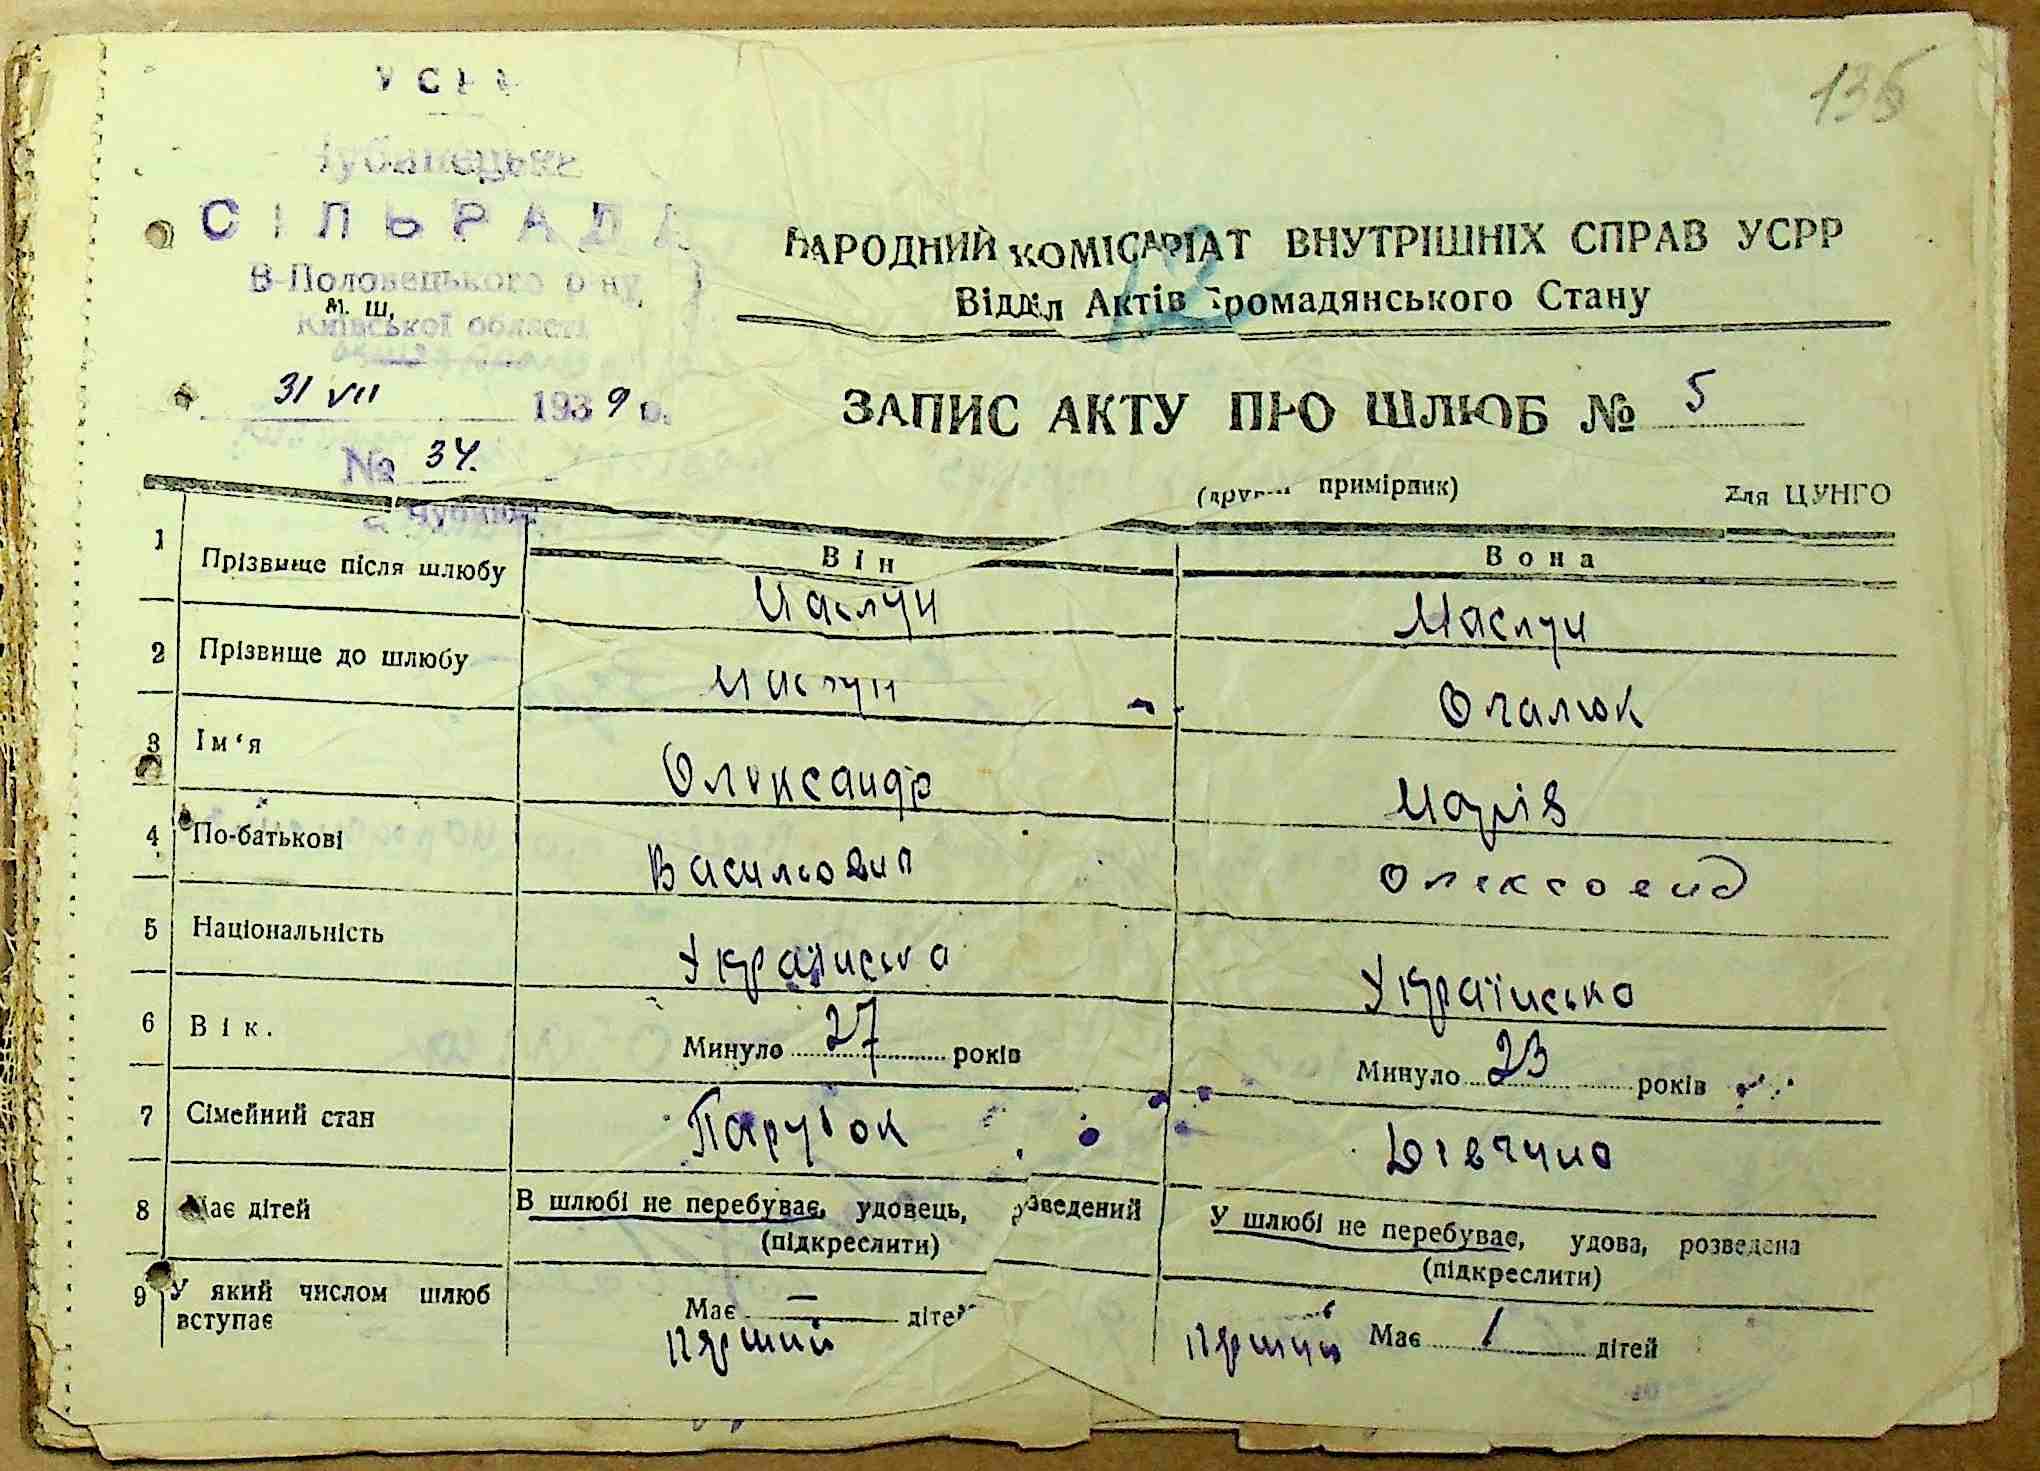 135
УСРР
Чубинецька
СІЛЬРАДА
В-Половецького р-ну
м. ш,
Київської області
31 VII 1939 р.
№ 34.
НАРОДНИЙ КОМІСАРІАТ ВНУТРІШНІХ СПРАВ УСРР
Відділ Актів Громадянського Стану
12
ЗАПИС АКТУ ПРО ШЛЮБ № 5
(другий примірник) Для ЦУНГО
Він Вона
1 Прізвище після шлюбу Маслун Маслун
2 Прізвище до шлюбу Маслун
3 Ім‘я Олександр Марія
4 По-батькові Васильович Олексеєвна
5 Національність Українська Українська
6 Вік. Минуло 27 років Минуло 23 років
7 Сімейний стан Парубок Дівчина
8 Має дітей В шлюбі не перебуває, удовець, розведений У шлюбі не перебуває, удова, розведена
(підкреслити) (підкреслити)
9 У який числом шлюб вступає Має — дітей Має 1 дітей
перший перший